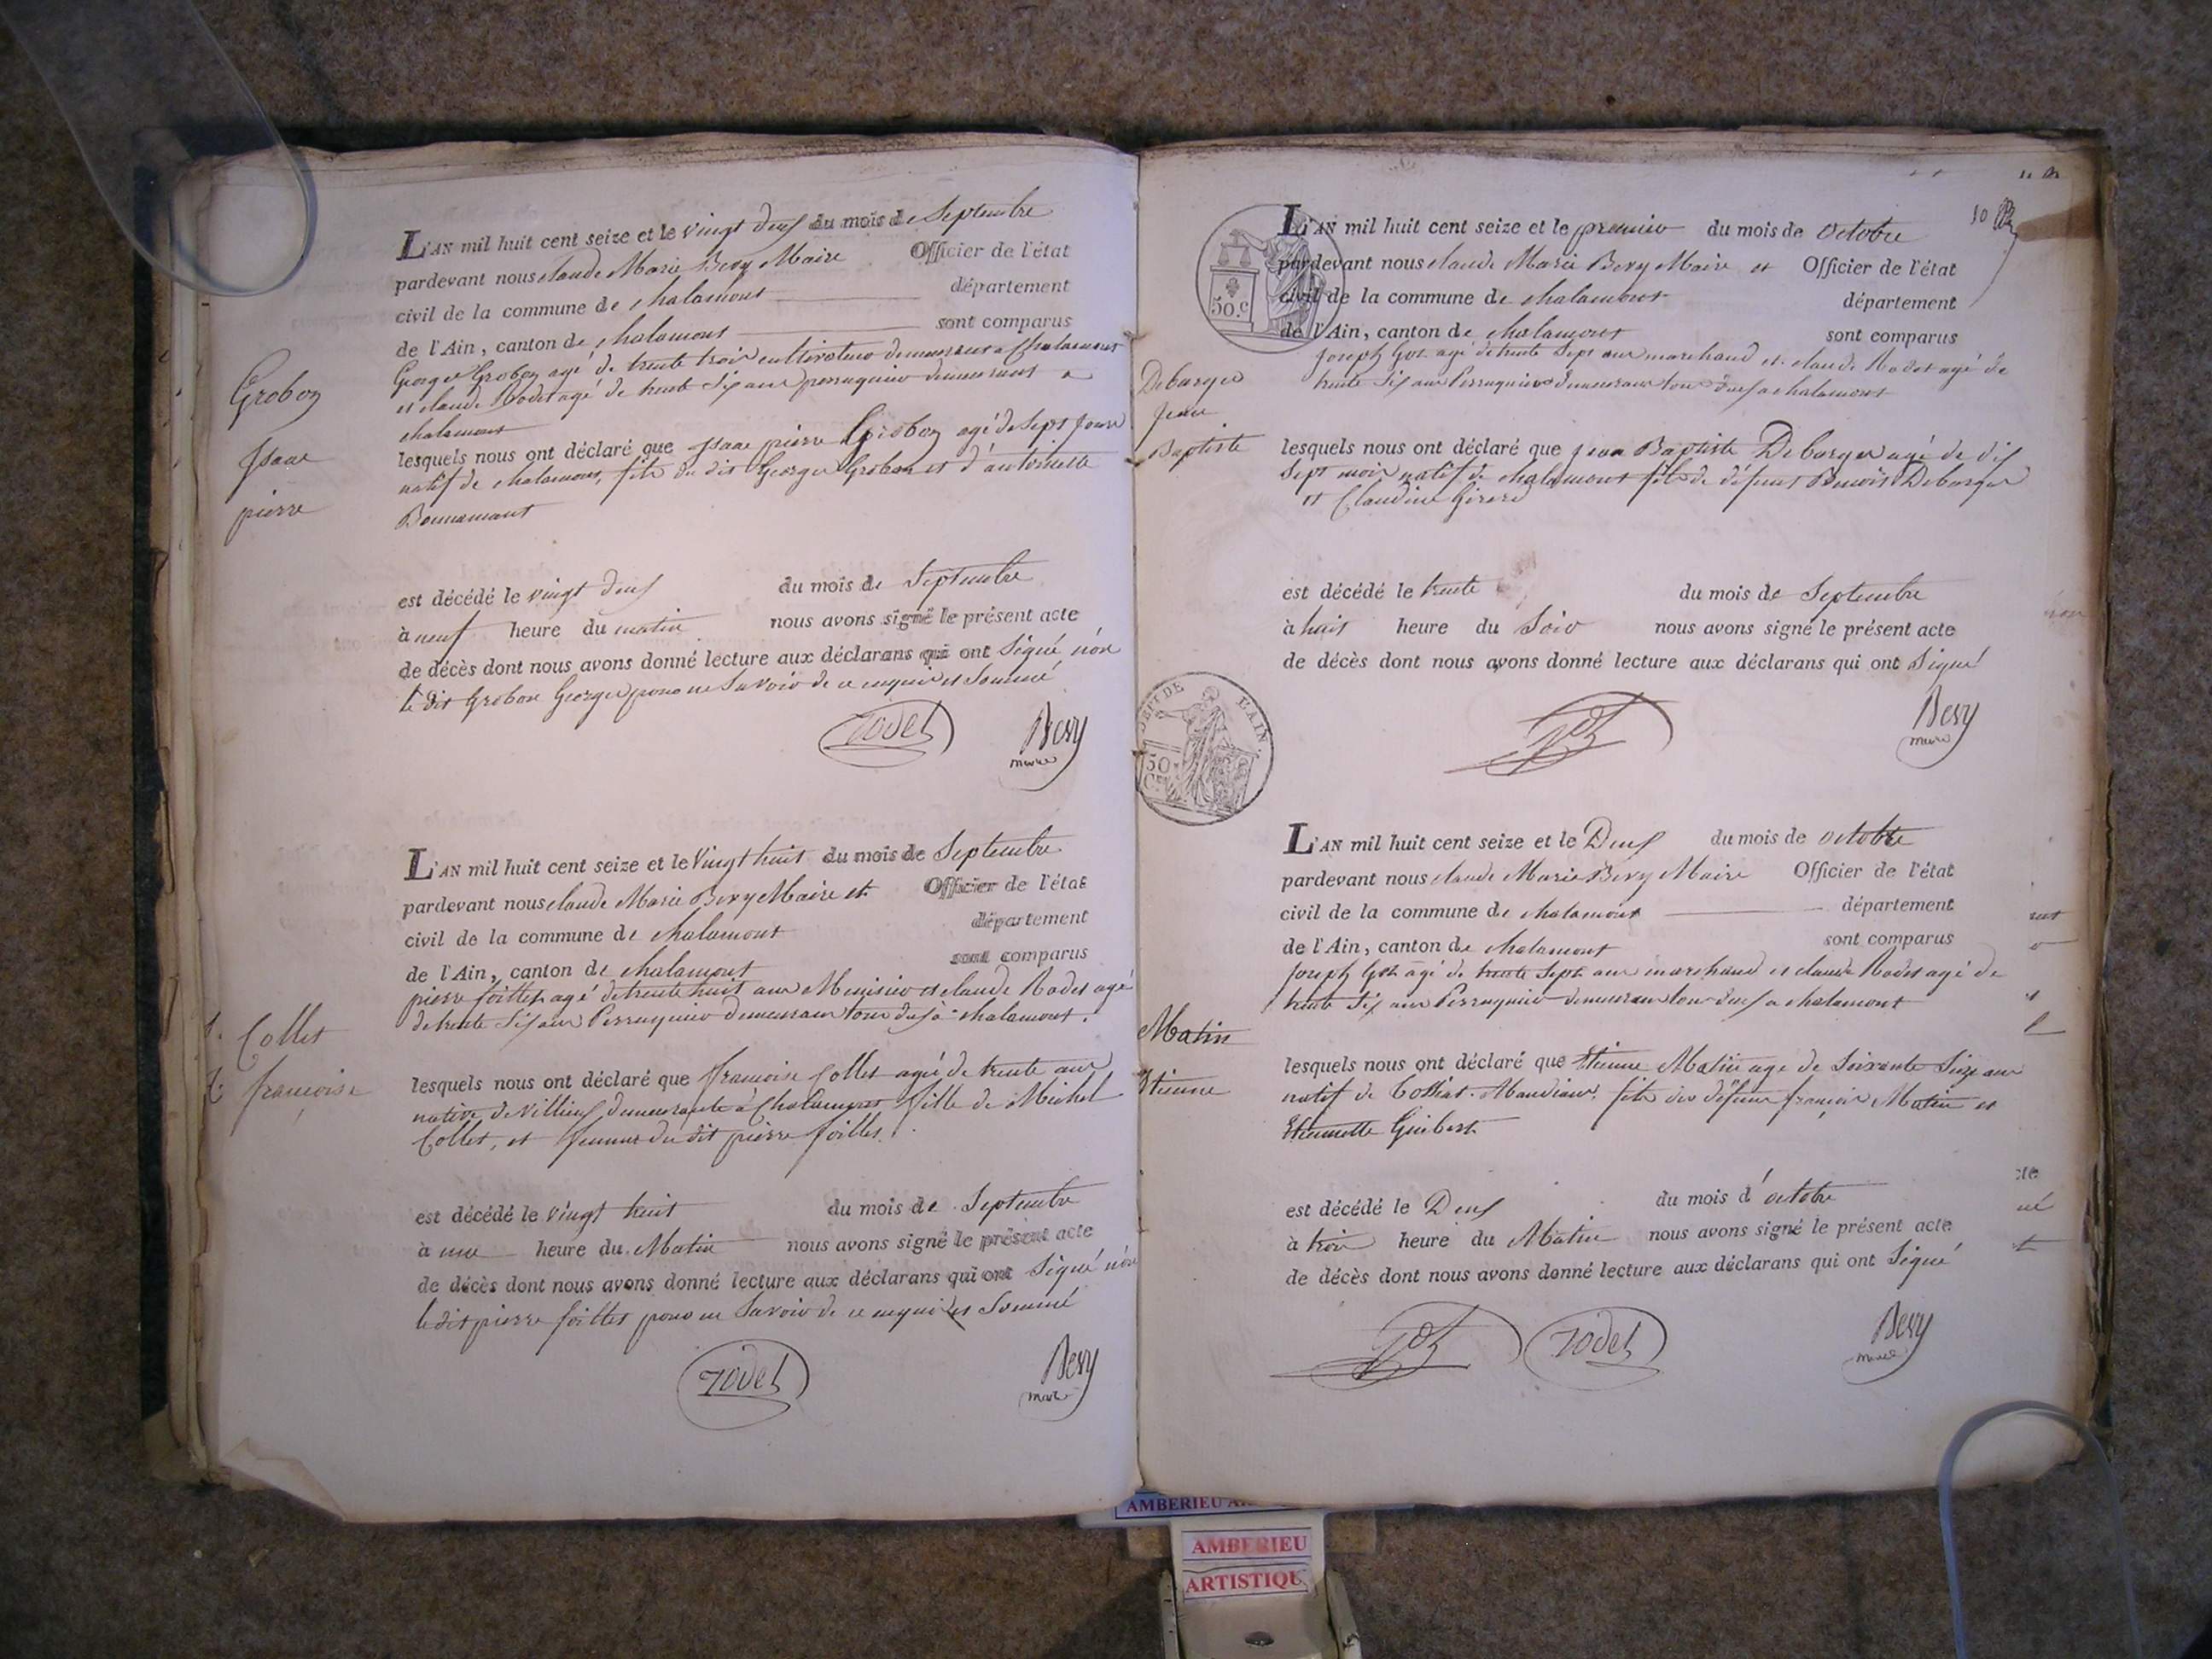 L'AN mil huit cent seize et le vingt deux du mois de Septembre
pardevant nous claude Marie Bevy Maire Officier de l'état
civil de la commune de chalamont département
de l'Ain, canton de chalamont sont comparus
George Grobon agé de trente trois cultivateur demeurant a Chalamont
et claude Rodet agé de trente Six ans perruquier demeurant a
chalamont
Grobon
Isaac
pierre
lesquels nous ont déclaré que Isaac pierre Grobon agé de Sept Jours
natif de chalamont, fils du dit George Grobon et d'antoinette
Bonnamant
est décédé le vingt deux du mois de Septembre
à neuf heure du matin nous avons signé le présent acte
de décès dont nous avons donné lecture aux déclarans qui ont Signé non
le dit Grobon George pour ne Savoir de ce enquis et Sommé
Rodet Bevy
maire
L'AN mil huit cent seize et le Vingt huit du mois de Septembre
pardevant nous claude Marie Bevy Maire et Officier de l'état
civil de la commune de chalamont département
de l'Ain, canton de chalamont sont comparus
pierre foillet agé de trente huit ans Menisier et claude Rodet agé
de trente Six ans Perruquier demeurans tous deux à chalamont.
Collet
francoise
lesquels nous ont déclaré que francoise Collet agée de trente ans
native de Villieux demeurante à Chalamont fille de Michel
Collet, et femme du dit pierre foillet.
est décédé le vingt huit du mois de Septembre
à une heure du Matin nous avons signé le présent acte
de décès dont nous avons donné lecture aux déclarans qui ont Signé non
le dit pierre foillet pour ne Savoir de ce enquis et Sommé
Rodet Bevy
maire
10
L'AN mil huit cent seize et le premier du mois de octobre
pardevant nous claude Marie Bevy Maire et Officier de l'état
civil de la commune de chalamont département
de l'Ain, canton de chalamont sont comparus
50.c
Joseph Got agé de trente Sept ans marchand et claude Rodet agé de
trente Six ans Perruquier demeurans tous deux a chalamont
Debarger
Jean
Baptiste
lesquels nous ont déclaré que jean Baptiste Debarger agé de dix
Sept mois natif de chalamont fils de défunt Benoit Debarger
et Claudine Girerd
est décédé le trente du mois de Septembre
à huit heure du Soir nous avons signé le présent acte
de décès dont nous avons donné lecture aux déclarans qui ont Signé
Got Bevy
maire
DEPT DE L'AIN.
50
Cen
L'AN mil huit cent seize et le Deux du mois de octobre
pardevant nous claude Marie Bevy Maire Officier de l'état
civil de la commune de chalamont département
de l'Ain, canton de chalamont sont comparus
Joseph Got agé de trente Sept ans marchand et claude Rodet agé de
trente Six ans Perruquier demeurans tous deux a chalamont
Matin
Etienne
lesquels nous ont déclaré que Etienne Matin age de Soixante Six ans
natif de fils des défunts françois Matin et
Etiennette Guibert
est décédé le Deux du mois d'octobre
à trois heure du Matin nous avons signé le présent acte
de décès dont nous avons donné lecture aux déclarans qui ont Signé
Got Rodet Bevy
maire
AMBERIEU
AMBERIEU
ARTISTIQU